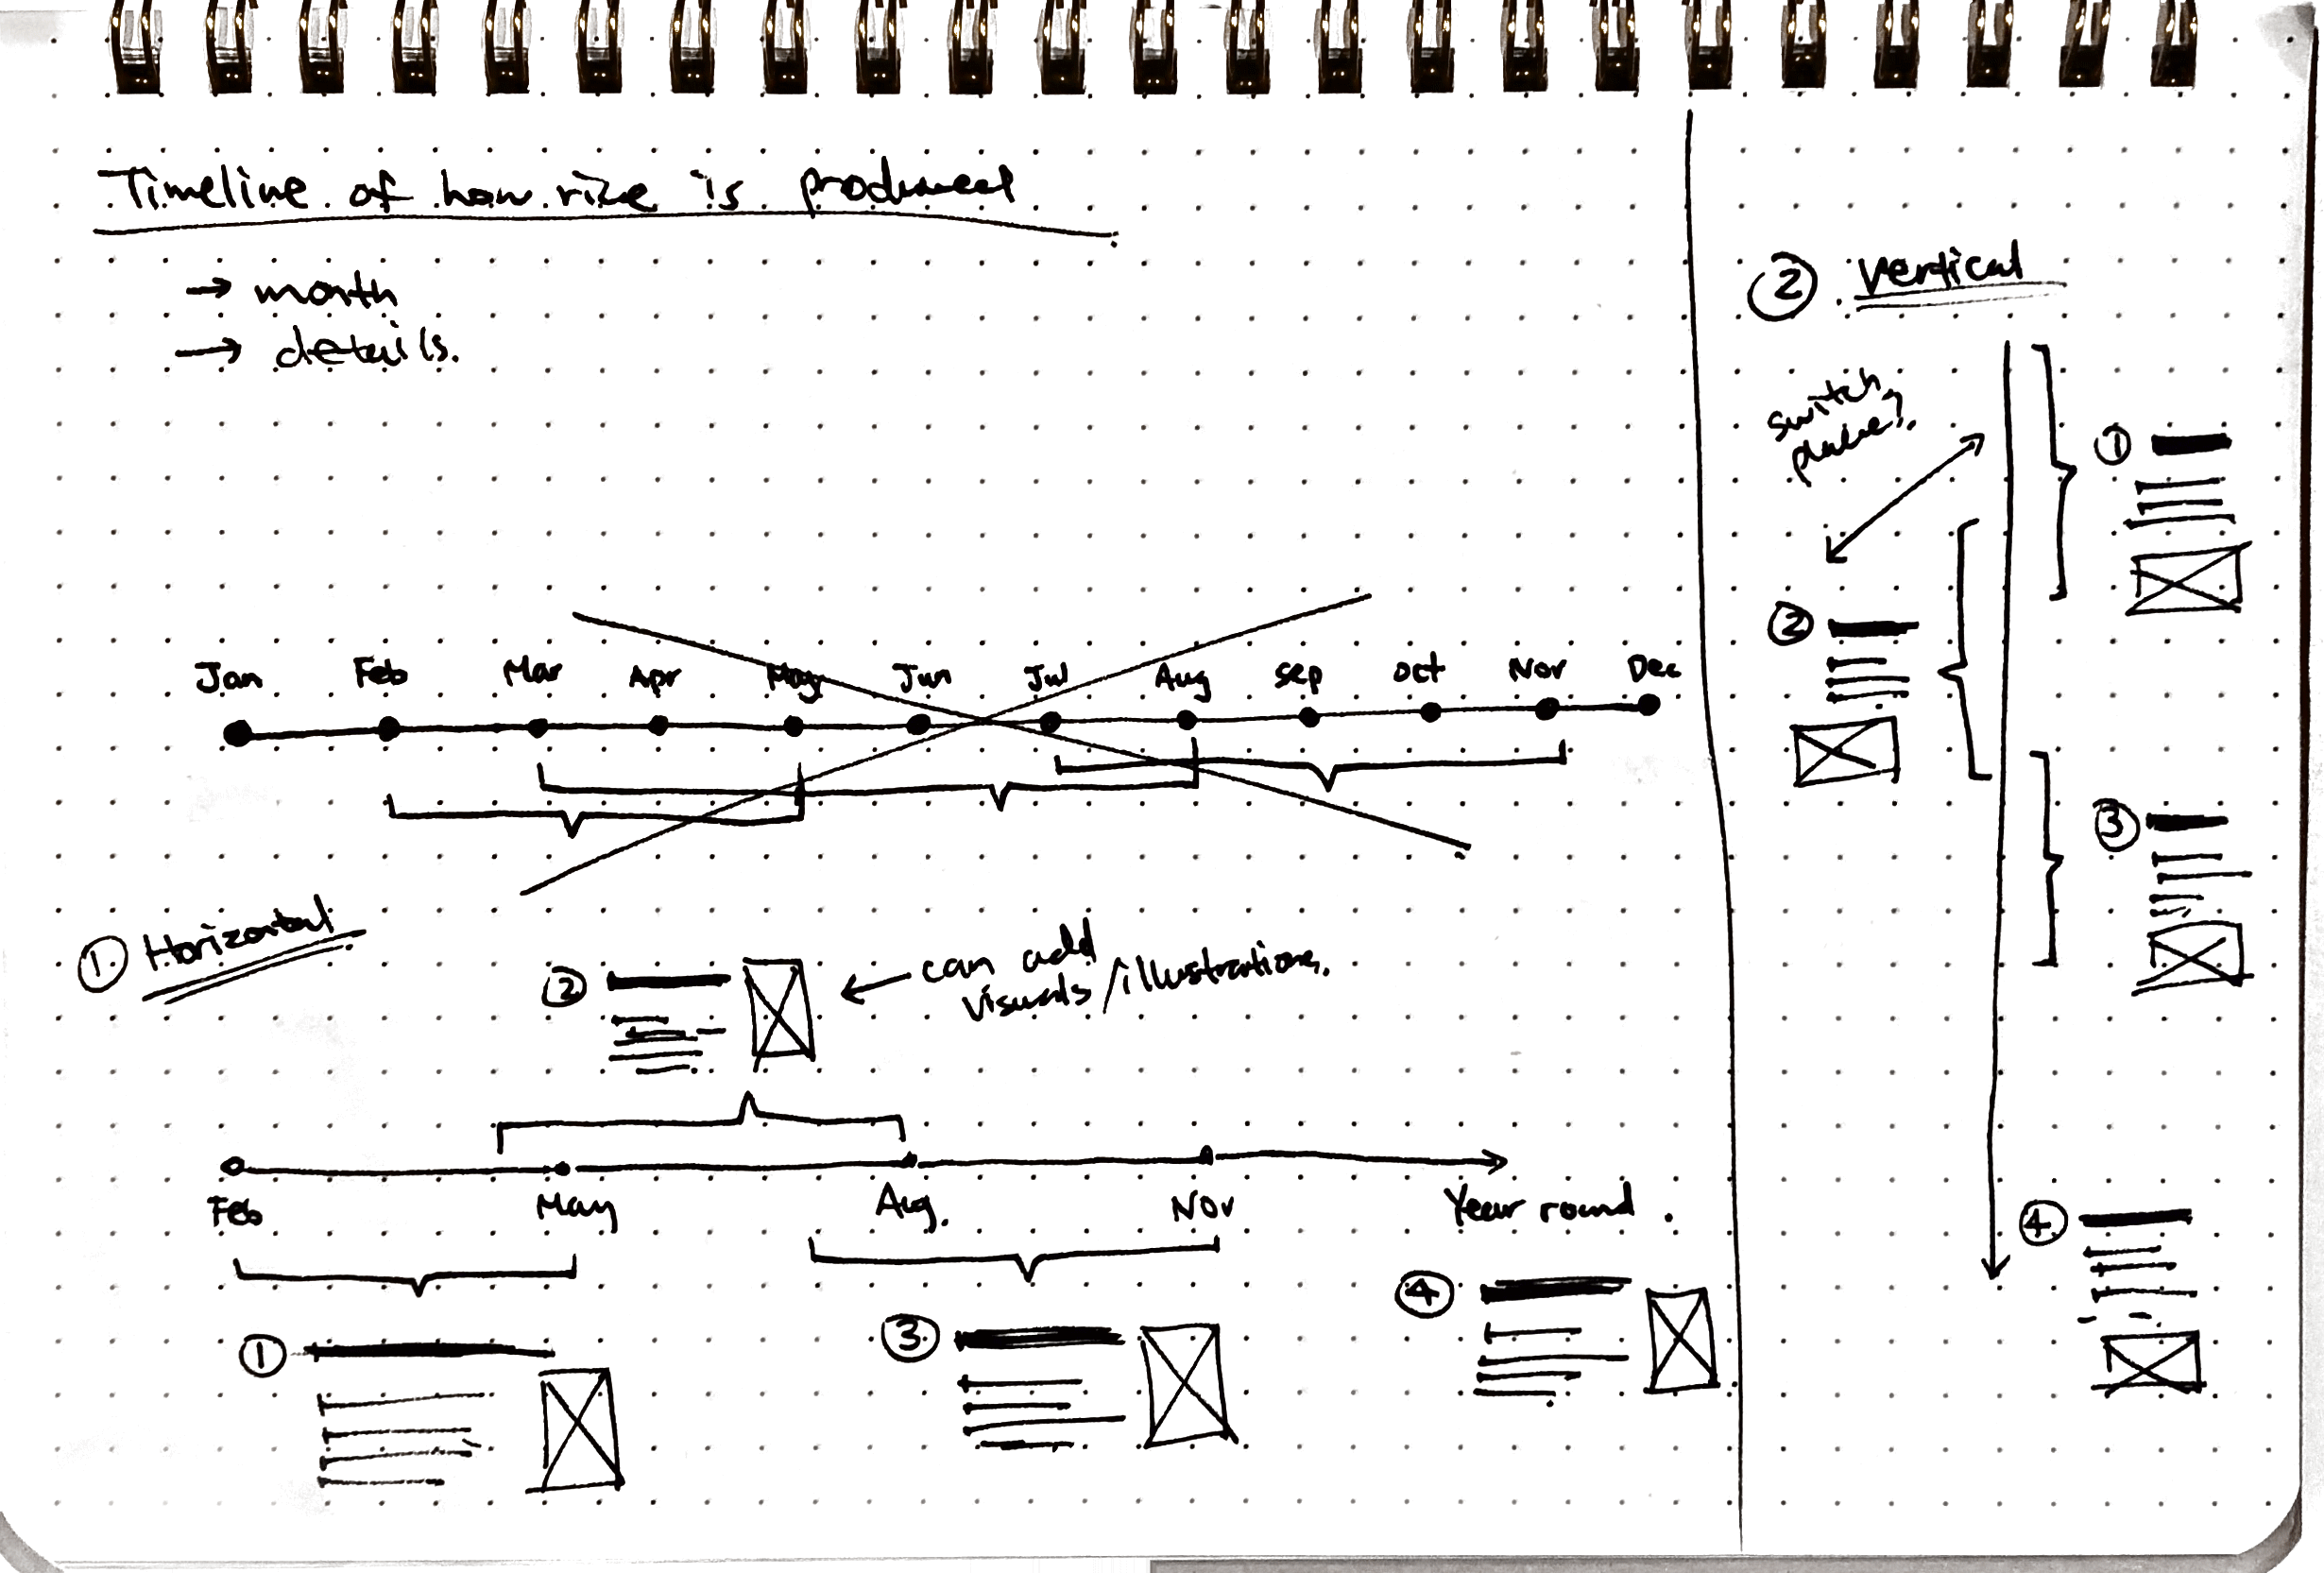 Timeline of how rice is produced
→ month
→ details.
Jan Feb Mar Apr May Jun Jul Aug Sep Oct Nov Dec
① Horizontal
②
← can add
visuals/illustrations.
Feb May Aug. Nov Year round.
①
③
④
② Vertical
switch
places?
①
②
③
④